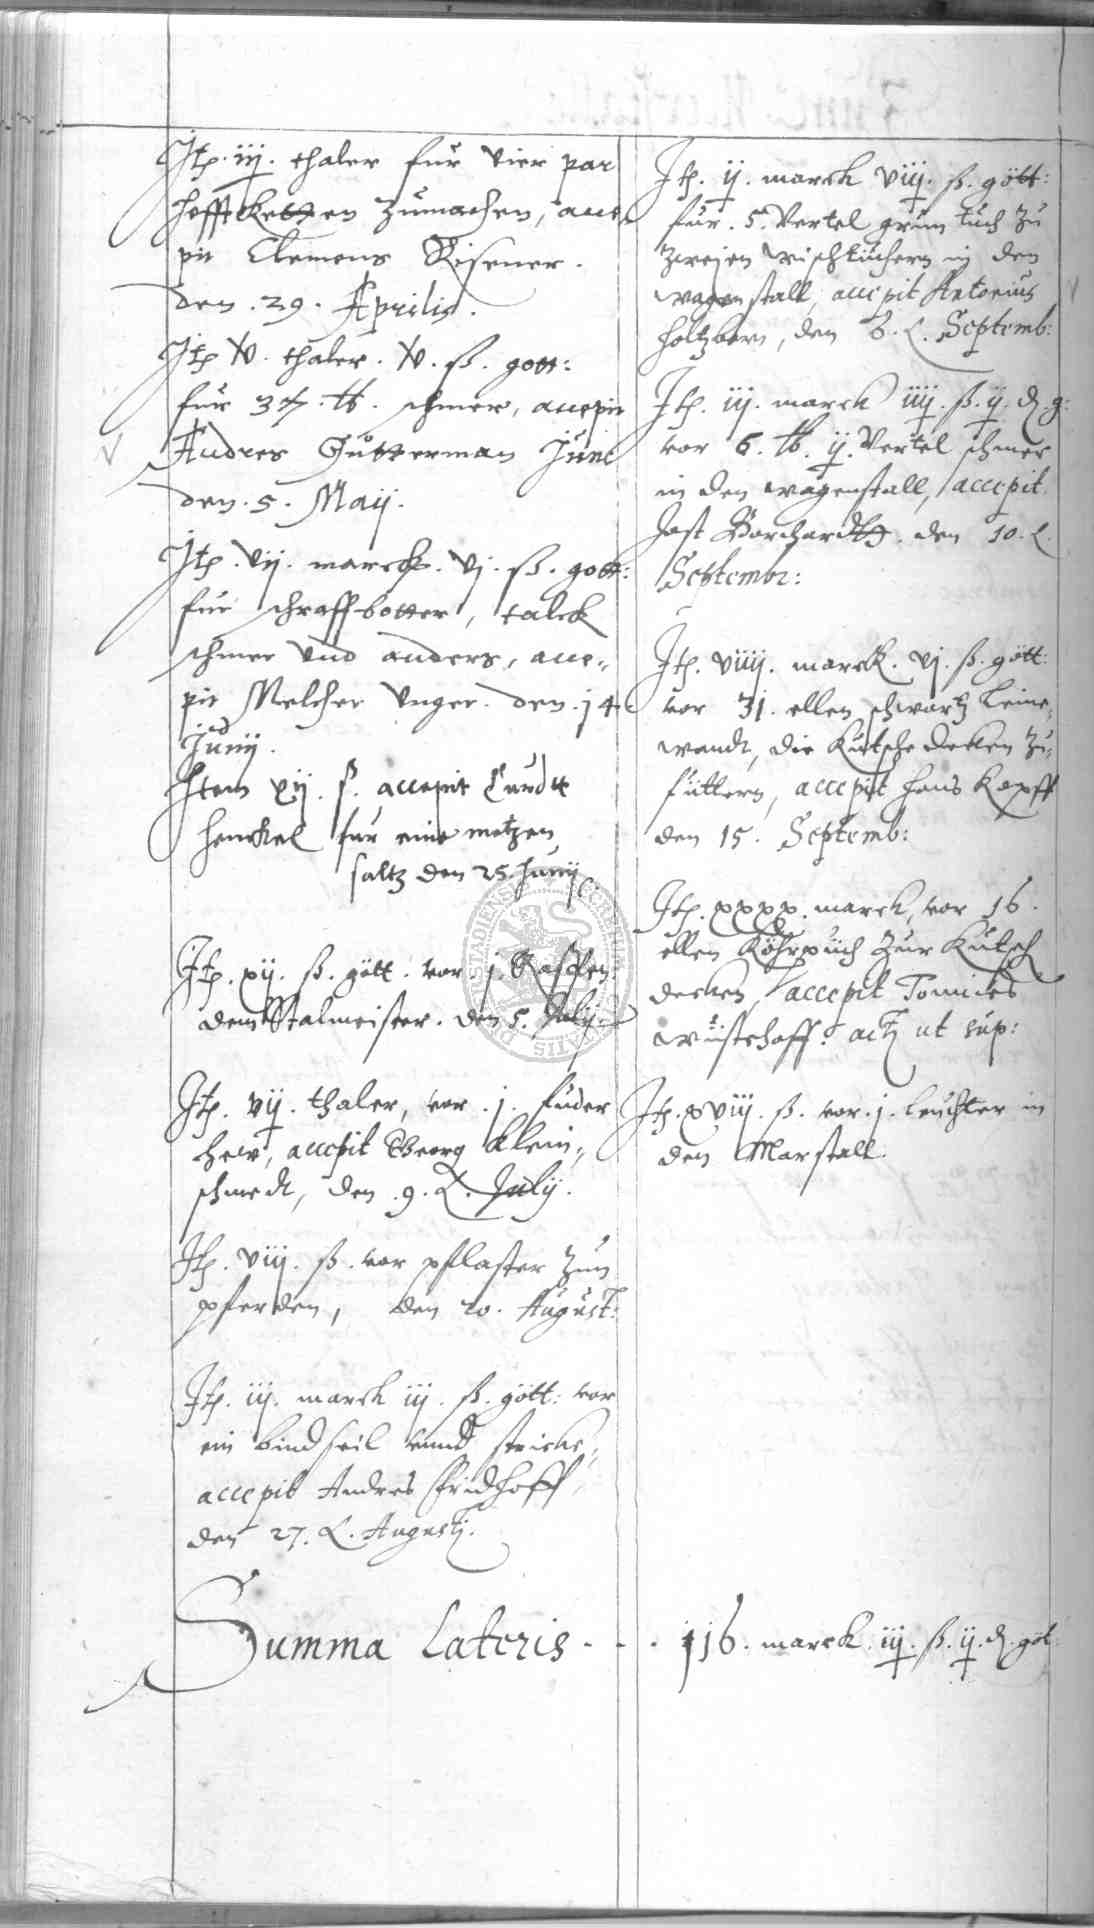 Itp. iij. thaler fur vier par
hofftketten zumachen, acce
pit Clemens Risener.
den. 29. Aprilis.
Itp xv. thaler. xv. ß. gott:
fur 37. lb. schmer, accepit
Andres Gutterman Juni
den. 5. Maij.
Itp. vij. marck. vj. ß. gott:
fur schraffbotter, talck
schmer vnd anders, acce„
pit Melcher Vnger. den. 14
Junij.
Item xij. ß. accepit Curdtt
Henckel fur eine metzen
saltz den 25. Junij
Itp. xij. ß. gött. vor j.
dem Stalmeister. den 5. Julij.
Itp. vij. thaler, vor. j. fuder
hew, accepit Georg Klein„
schmedt, den. 9. Julij.
Itp. viij. ß. vor pflaster zun
pferden, den 20. August:
Itp. iij. marck iij. ß. gött: vor
ein bindseil vnnd stricke,
accepit Andres Fridhoff,
den 27. Augustj.
Itp. ij. marck viij. ß. gött:
fur. 5. Vertel grun tuch zu
zweien wischtüchern in den
wagenstall, accepit Antonius
Holtzborn, den 6. Septemb:
Itp. iij. marck iiij. ß. ij. d. g:
vor 6. lb. ij. Vertel schmer
in den wagenstall, accepit
Jost Borchardtt. den 10.
Septembr:
Itp. viiij. marck. vj. ß. gött:
vor 31. ellen schwartz Leine„
wandt, die Kutsche decken zu„
füttern, accepit Hans Kopff
den 15. Septemb:
Itp. xxxx. marck, vor 16.
ellen zur Kutsch
decken, accepit Tonnies
Wüstehoff. act ut sup:
Itp. xviij. ß. vor. j. leuchter in
den Marstall.
Summa Lateris - - . 116. marck. iij. ß. ij. d. göt: